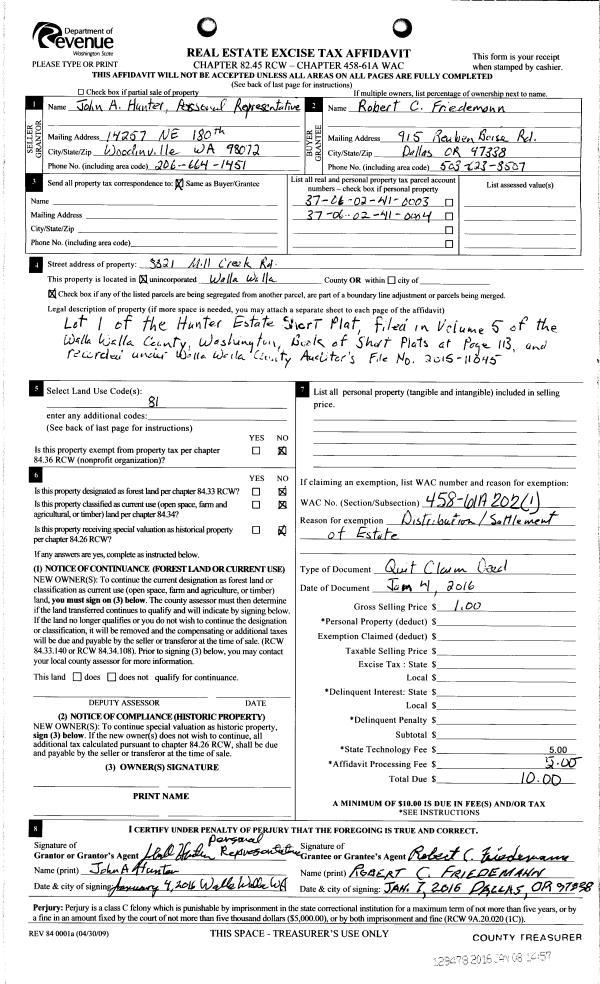 Department of
Revenue
Washington State
PLEASE TYPE OR PRINT
REAL ESTATE EXCISE TAX AFFIDAVIT
CHAPTER 82.45 RCW – CHAPTER 458-61A WAC
This form is your receipt
when stamped by cashier.
THIS AFFIDAVIT WILL NOT BE ACCEPTED UNLESS ALL AREAS ON ALL PAGES ARE FULLY COMPLETED
(See back of last page for instructions)
Check box if partial sale of property
If multiple owners, list percentage of ownership next to name.
1 Name John A. Hunter, Personal Representative
SELLER GRANTOR
Mailing Address 14257 NE 180th
City/State/Zip Woodinville WA 98072
Phone No. (including area code) 206-664-1451
2 Name Robert C. Friedemann
BUYER GRANTEE
Mailing Address 915 Reuben Boise Rd.
City/State/Zip Dallas OR 97338
Phone No. (including area code) 503 623-8507
3 Send all property tax correspondence to: Same as Buyer/Grantee
Name
Mailing Address
City/State/Zip
Phone No. (including area code)
List all real and personal property tax parcel account
numbers – check box if personal property
37-06-02-41-0003
37-06-02-41-0004
List assessed value(s)
4 Street address of property: 3321 Mill Creek Rd.
This property is located in unincorporated Walla Walla County OR within city of
Check box if any of the listed parcels are being segregated from another parcel, are part of a boundary line adjustment or parcels being merged.
Legal description of property (if more space is needed, you may attach a separate sheet to each page of the affidavit)
Lot 1 of the Hunter Estate Short Plat, filed in Volume 5 of the
Walla Walla County, Washington, Book of Short Plats at Page 113, and
recorded under Walla Walla County Auditor's File No. 2015-11045
5 Select Land Use Code(s):
81
enter any additional codes:
(See back of last page for instructions)
YES NO
Is this property exempt from property tax per chapter
84.36 RCW (nonprofit organization)?
6 YES NO
Is this property designated as forest land per chapter 84.33 RCW?
Is this property classified as current use (open space, farm and
agricultural, or timber) land per chapter 84.34?
Is this property receiving special valuation as historical property
per chapter 84.26 RCW?
If any answers are yes, complete as instructed below.
(1) NOTICE OF CONTINUANCE (FOREST LAND OR CURRENT USE)
NEW OWNER(S): To continue the current designation as forest land or
classification as current use (open space, farm and agriculture, or timber)
land, you must sign on (3) below. The county assessor must then determine
if the land transferred continues to qualify and will indicate by signing below.
If the land no longer qualifies or you do not wish to continue the designation
or classification, it will be removed and the compensating or additional taxes
will be due and payable by the seller or transferor at the time of sale. (RCW
84.33.140 or RCW 84.34.108). Prior to signing (3) below, you may contact
your local county assessor for more information.
This land does does not qualify for continuance.
DEPUTY ASSESSOR DATE
(2) NOTICE OF COMPLIANCE (HISTORIC PROPERTY)
NEW OWNER(S): To continue special valuation as historic property,
sign (3) below. If the new owner(s) does not wish to continue, all
additional tax calculated pursuant to chapter 84.26 RCW, shall be due
and payable by the seller or transferor at the time of sale.
(3) OWNER(S) SIGNATURE
PRINT NAME
7 List all personal property (tangible and intangible) included in selling
price.
If claiming an exemption, list WAC number and reason for exemption:
WAC No. (Section/Subsection) 458-61A 202(1)
Reason for exemption Distribution/Settlement
of Estate
Type of Document Quit Claim Deed
Date of Document Jan 4, 2016
Gross Selling Price $ 1.00
*Personal Property (deduct) $
Exemption Claimed (deduct) $
Taxable Selling Price $
Excise Tax : State $
Local $
*Delinquent Interest: State $
Local $
*Delinquent Penalty $
Subtotal $
*State Technology Fee $ 5.00
*Affidavit Processing Fee $ 5.00
Total Due $ 10.00
A MINIMUM OF $10.00 IS DUE IN FEE(S) AND/OR TAX
*SEE INSTRUCTIONS
8 I CERTIFY UNDER PENALTY OF PERJURY THAT THE FOREGOING IS TRUE AND CORRECT.
Signature of
Grantor or Grantor's Agent John Hunter Personal Representative
Name (print) John A Hunter
Date & city of signing: January 4, 2016 Walla Walla WA
Signature of
Grantee or Grantee's Agent Robert C. Friedemann
Name (print) ROBERT C. FRIEDEMANN
Date & city of signing: JAN. 7, 2016 DALLAS, OR 97338
Perjury: Perjury is a class C felony which is punishable by imprisonment in the state correctional institution for a maximum term of not more than five years, or by
a fine in an amount fixed by the court of not more than five thousand dollars ($5,000.00), or by both imprisonment and fine (RCW 9A.20.020 (1C)).
REV 84 0001a (04/30/09)
THIS SPACE - TREASURER'S USE ONLY
COUNTY TREASURER
129478 2016 JAN 08 14:57